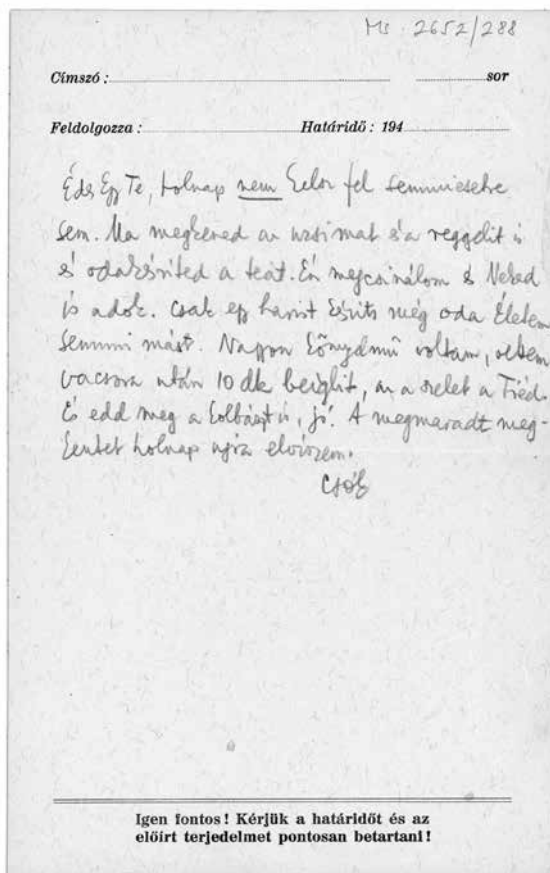 Ms 2652/288
Címszó : sor
Feldolgozza : Határidő : 194
Édes Egy Te, holnap nem kelsz fel semmiesetre
sem. Ma megkened az uzsimat és a reggelit is
és odakészíted a teát. Én megcsinálom és Neked
is adok. Csak egy harist készíts még oda Életem
semmi mást. Nagyon könnyelmű voltam, vettem
vacsora után 10 dk beiglit, az a szelet a Tiéd.
És edd meg a kolbászt is, jó! A megmaradt meg-
kentet holnap ujra elviszem.
Csók
Igen fontos! Kérjük a határidőt és az
előírt terjedelmet pontosan betartani!